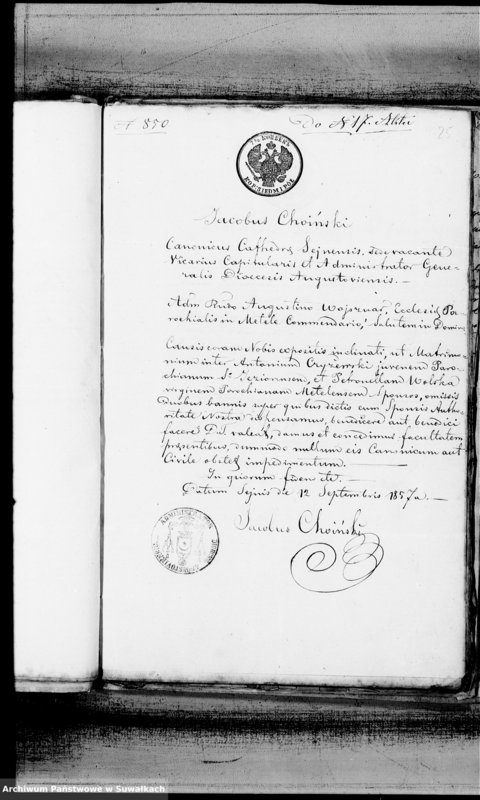 N 850
Do N 17. Aktu
25
7½ КОПѢЕК
Jacobus Choiński
Canonicus Cathedrę Sejnensis, sede vacante
Vicarius Capitularis et Administrator Gene-
ralis Dioecesis Augustoviensis. —
Adm Rndo Augustino Wojsznar, Ecclesię Pa-
rochialis in Metele Commendario, Salutem in Domino
Causis coram Nobis expositis inclinati, ut Matrimo-
nium inter Antonium Czyżewski juvenem Paro-
chianum, et Petronellam Wolska
virginem Parochianam Metelensem Sponsos, omissis
Duobus bannis super quibus dictis cum Sponsis Autho-
ritate Nostra dispensamus, benedicere aut benedici
facere valeas, damus et concedimus facultatem
pręsentibus, dummodo nullum eis Canonicum aut
Civile obstet impedimentum. —
In quorum fidem etc. —
Datum Sejnis die 12 Septembris 1857 a. —
Jacobus Choiński
Archiwum Państwowe w Suwałkach